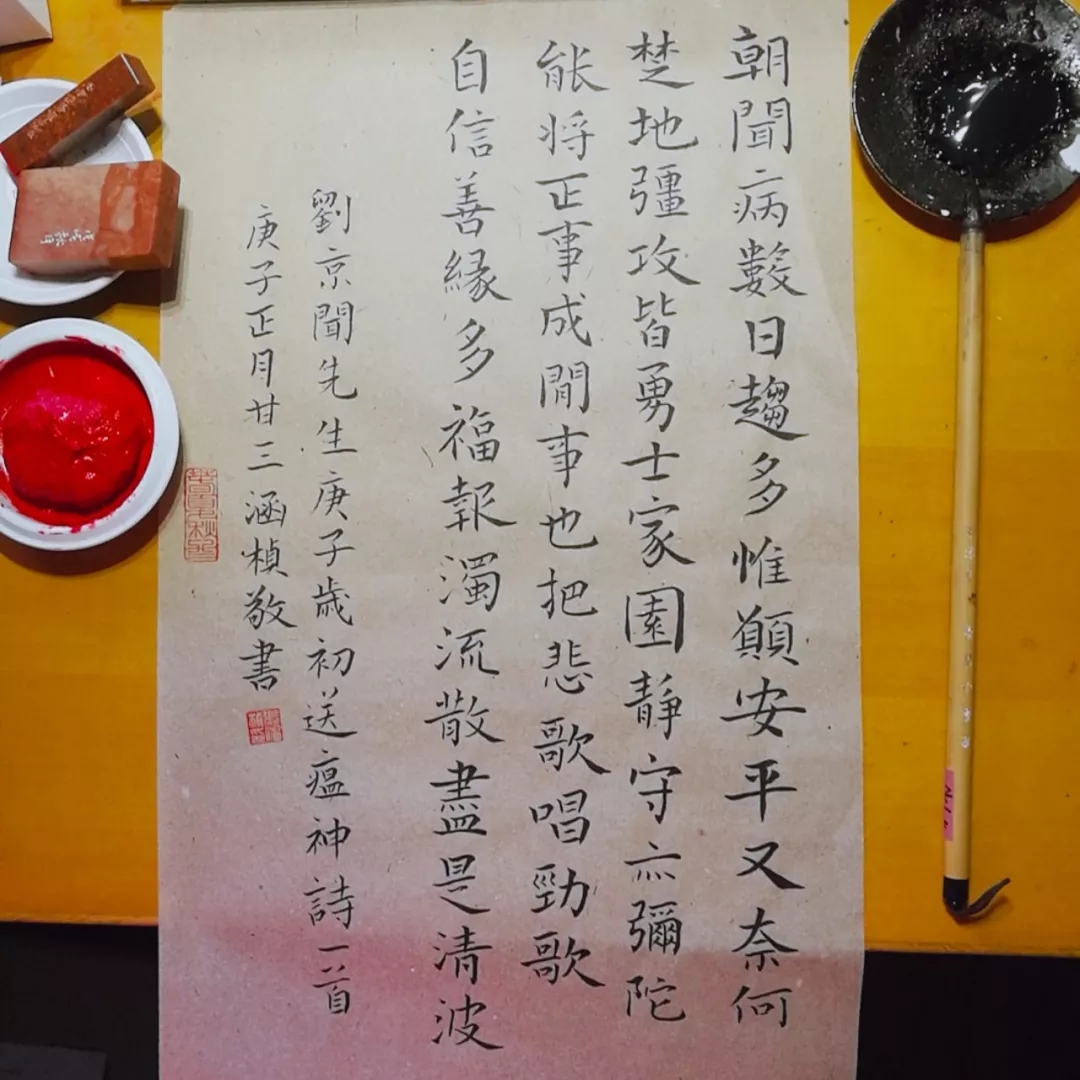 朝聞病數日趨多惟願安平又奈何
楚地彊攻皆勇士家園静守亦彌陀
能将正事成閒事也把悲歌唱勁歌
自信善緣多福報濁流散盡是清波
劉京聞先生庚子歲初送瘟神詩一首
庚子正月廿三涵楨敬書